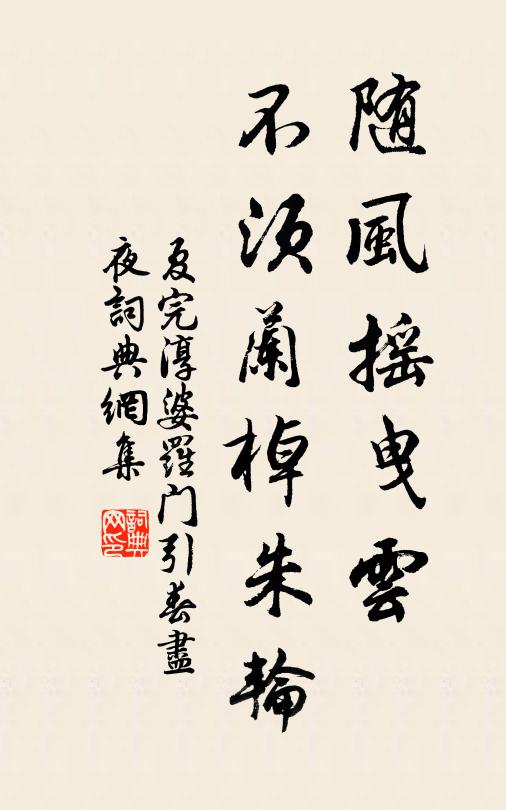 随風摇曳雲
不須蘭棹朱輪
夏完淳婆羅门引春盡
夜詞典網集
詞典
网印